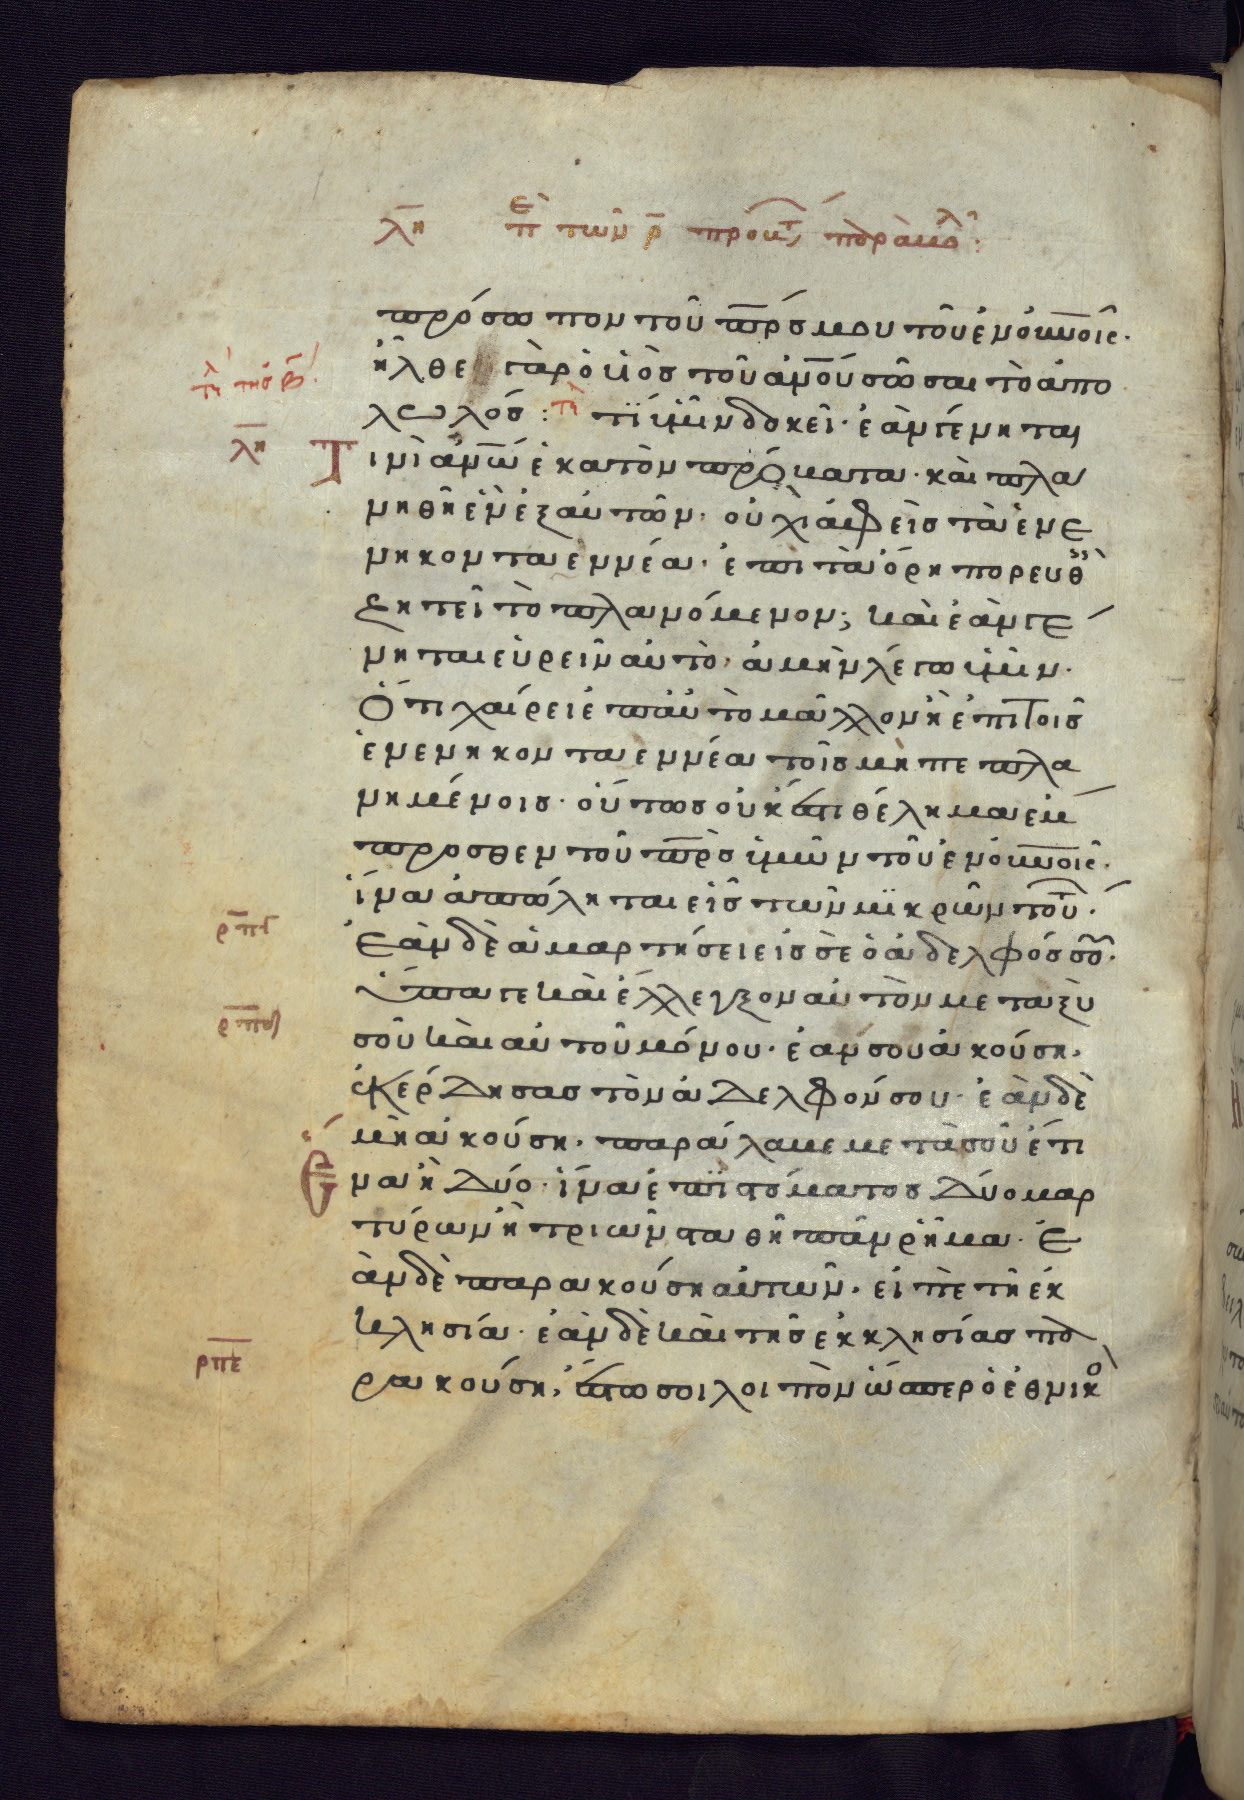 λη ΠΕ τῶν ρ̄ προβτ παραβλ:
πρόσωπον τοῦ π̅ρ̅ς μου τοῦ ἐν ὀυ̅νοις.
ἦλθε γὰρ ὁ υἱὸς τοῦ ἀν̅ου σῶσαι τὸ ἀπο
τλ τῆς β
λωλός: τλ τί ὑμῖν δοκεῖ· ἐὰν γένηται
λη
Τινὶ ἀν̅ω ἑκατὸν πρόβατα· καὶ πλα
νηθῆ ἐν ἐξ αὐτῶν· οὐχὶ ἀφεὶς τὰ ἐνε
νηκονταεννέα· ἐπι τὰ ὄρη πορευθ
ζητεῖ τὸ πλανόμενον; καὶ ἐὰν γέ
νηται εὑρεῖν αὐτὸ· ἀμὴν λέγω ὑμῖν·
Ὅτι χαίρει ἐπ' αὐτὸ μᾶλλον ἢ ἐπι τοις
ἐνενηκονταεννέα τοῖς μὴ πεπλα
νημένοις· οὕτως οὐκ ἔστι θέλημα ἐμ
προσθεν τοῦ π̅ρ̅ς ὑμῶν τοῦ ἐν ὀυ̅νοις.
ἵνα ἀπόληται εἷς τῶν μικρῶν τού·
ρπγ
Ἐὰν δὲ ἁμαρτήσει εἰς σὲ ὁ ἀδελφός σου·
ὕπαγε καὶ ἔλλεγξον αὐτὸν μεταξὺ
ρπδ
σοῦ καὶ αὐτοῦ μόνου· ἐάν σου ἀκούση·
ἐκέρδησας τὸν ἀδελφόν σου· ἐὰν δὲ
μὴ ἀκούση· παράλαβε μετὰ σοῦ ἔτι
ἕνα ἢ δύο· ἵνα ἐπὶ στόματος δύο μαρ
τύρων ἢ τριῶν σταθῆ πᾶν ῥῆμα· Ἐ
ὰν δὲ παρακούση αὐτῶν· εἰπὲ τῆ ἐκ
κλησία· ἐὰν δὲ καὶ τῆς ἐκκλησίας πα
ρπε
ρακούση· ἔστω σοι λοιπὸν ὥσπερ ὁ ἐθνικὸ